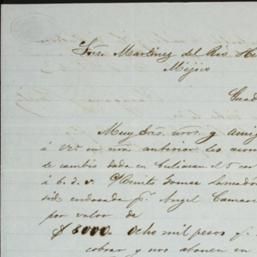 Sres. Martinez del Rio He
Mejico
Guad
Muy Sres. mros. y amig
á Vs. en mra anterior les acom
se cambio dada en Culiacan el 5 cor
á 6. d. v. c/ Benito Gomez
endosada p. Angel Camar
por valor de
$ 8000. Ocho mil pesos q.
cobrar y nos abonen en